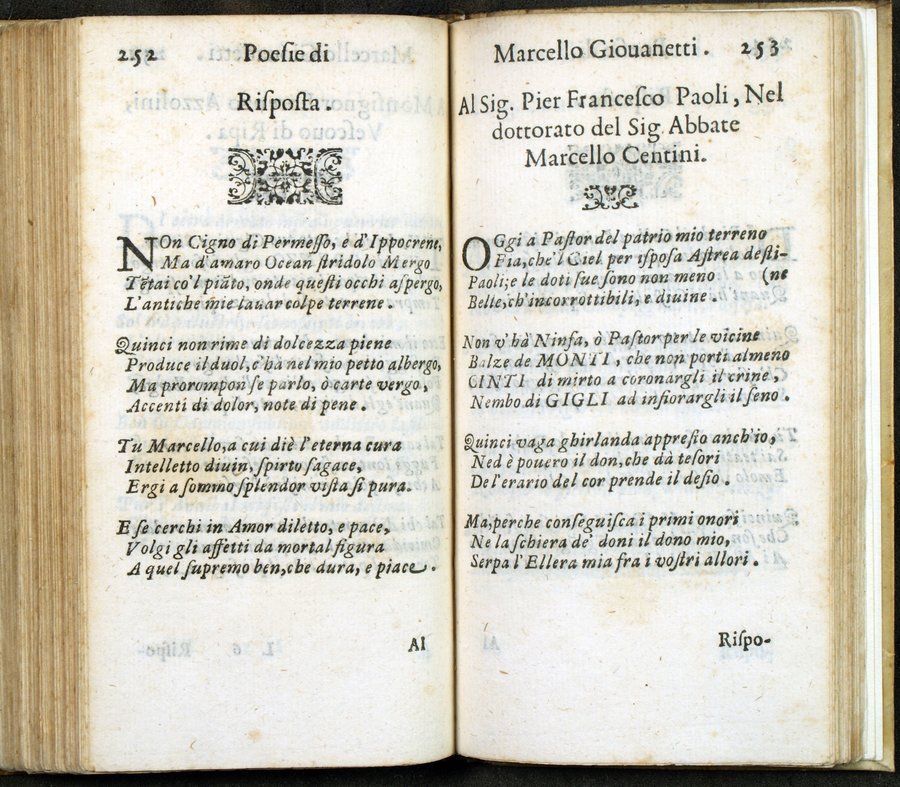 252 Poeſie di
Riſpoſta.
NOn Cigno di Permeſſo, e d'Ippocrene,
Ma d'amaro Ocean ſtridolo Mergo
Tẽtai co'l piãto, onde queſti occhi aſpergo,
L'antiche mie lauar colpe terrene.
Quinci non rime di dolcezza piene
Produce il duol, c'hà nel mio petto albergo,
Ma prorompon ſe parlo, ò carte vergo,
Accenti di dolor, note di pene.
Tu Marcello, a cui diè l'eterna cura
Intelletto diuin, ſpirto ſagace,
Ergi a ſommo ſplendor viſta ſi pura.
E ſe cerchi in Amor diletto, e pace,
Volgi gli affetti da mortal figura
A quel ſupremo ben, che dura, e piace.
Al
Marcello Giouanetti. 253
Al Sig. Pier Franceſco Paoli, Nel
dottorato del Sig. Abbate
Marcello Centini.
OGgi a Paſtor del patrio mio terreno
Fia, che'l Ciel per iſpoſa Aſtrea deſti-
Paoli; e le doti ſue ſono non meno (ne
Belle, ch'incorrottibili, e diuine.
Non v'hà Ninfa, ò Paſtor per le vicine
Balze de MONTI, che non porti almeno
CINTI di mirto a coronargli il crine,
Nembo di GIGLI ad infiorargli il ſeno.
Quinci vaga ghirlanda appreſto anch'io,
Ned è pouero il don, che dà teſori
De l'erario del cor prende il deſio.
Ma, perche conſeguiſca i primi onori
Ne la ſchiera de' doni il dono mio,
Serpa l'Ellera mia fra i voſtri allori.
Riſpo-